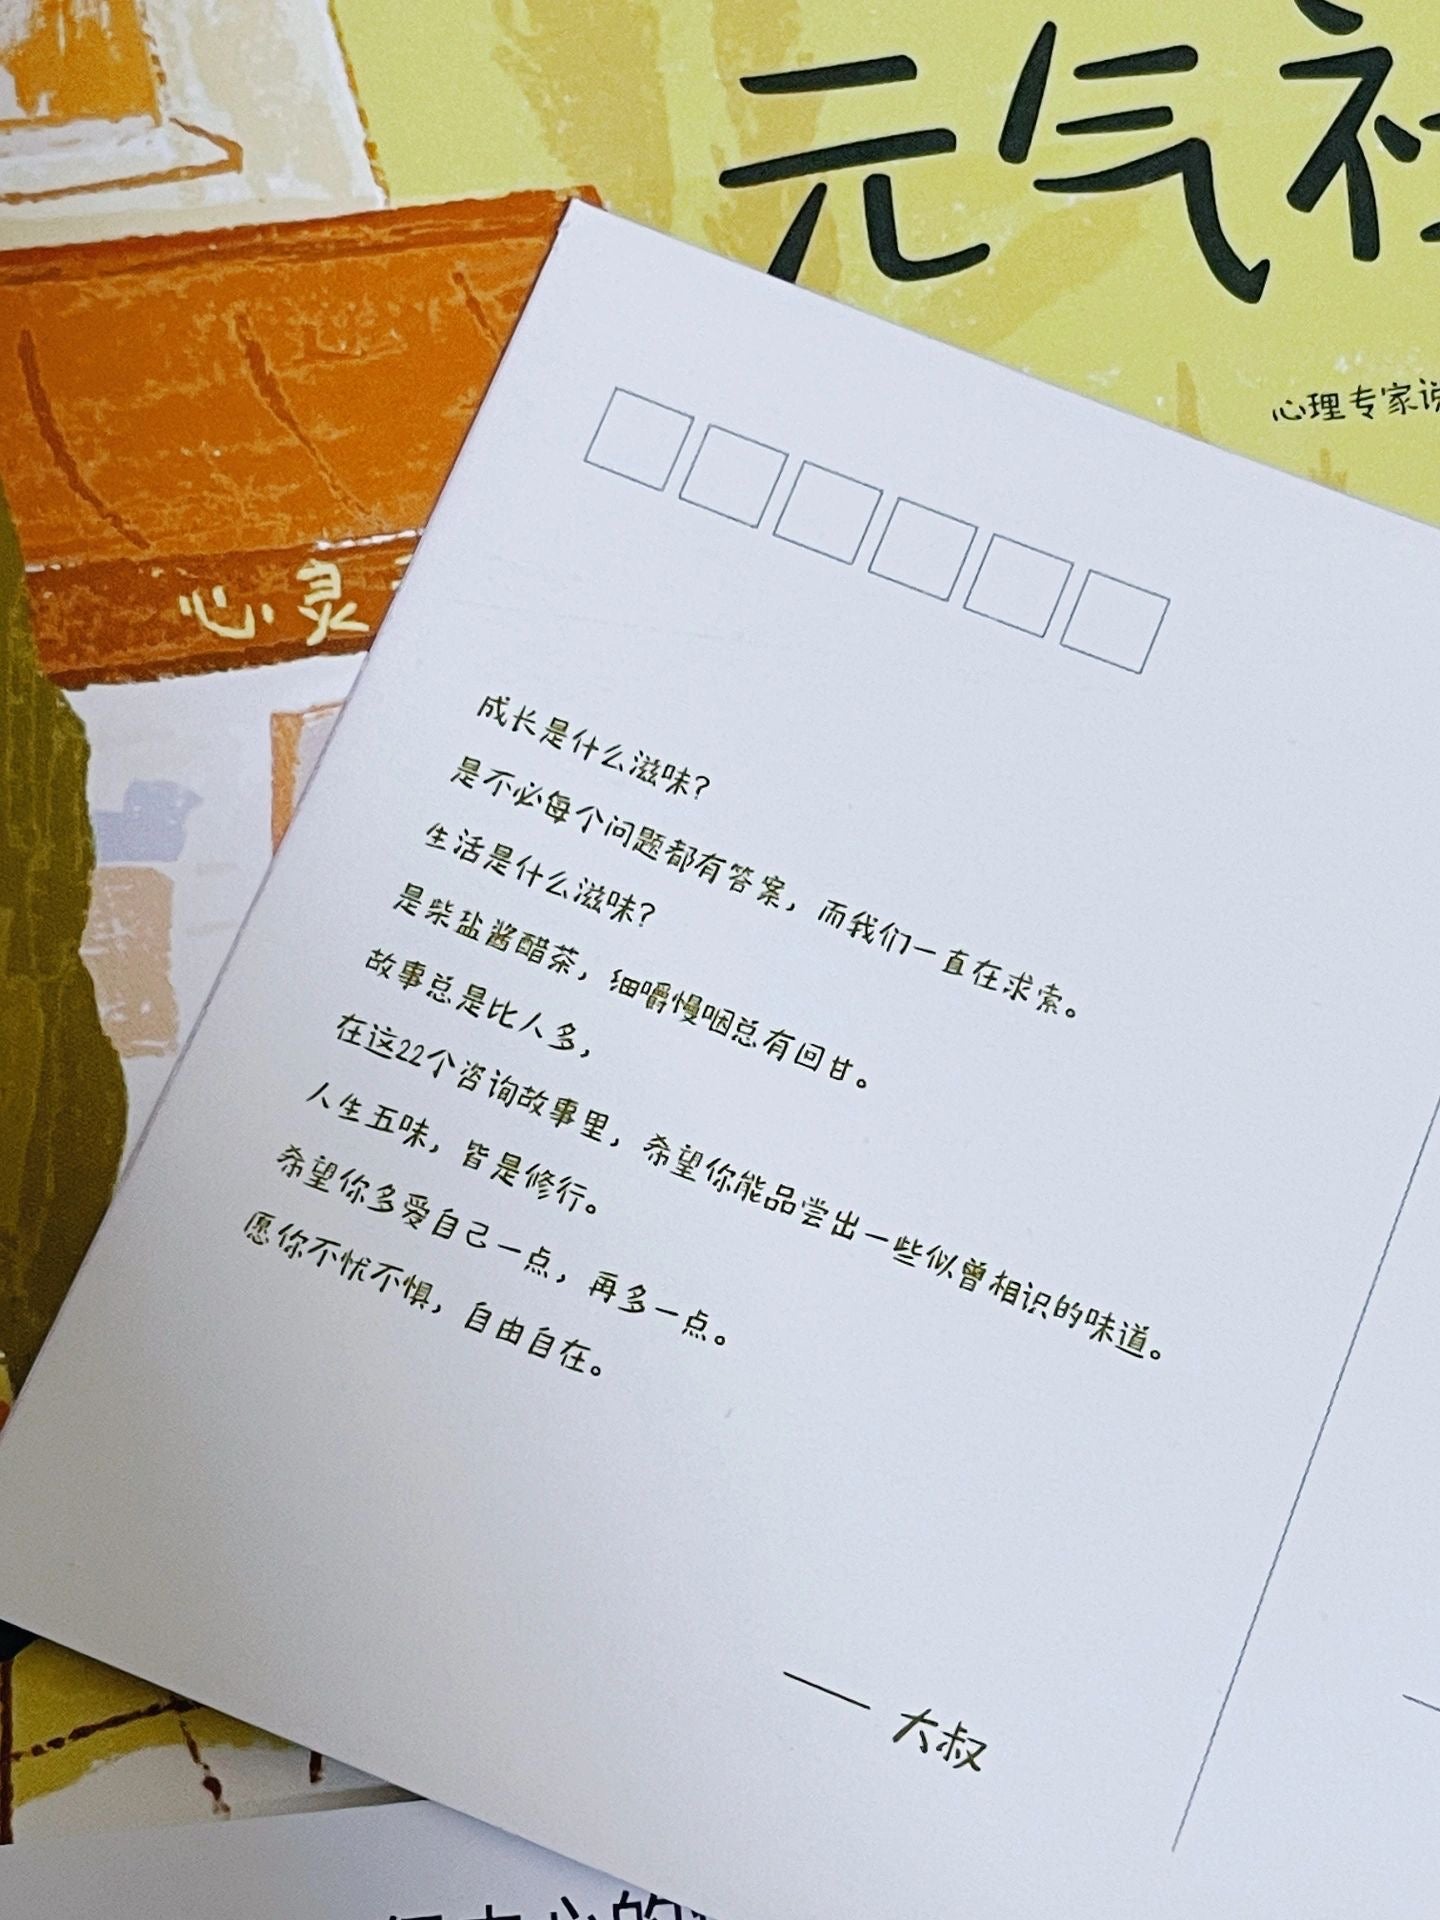 元气社
心理专家说
心灵
成长是什么滋味？
是不必每个问题都有答案，而我们一直在求索。
生活是什么滋味？
是柴盐酱醋茶，细嚼慢咽总有回甘。
故事总是比人多，
在这22个咨询故事里，希望你能品尝出一些似曾相识的味道。
人生五味，皆是修行。
希望你多爱自己一点，再多一点。
愿你不忧不惧，自由自在。
—— 大叔
心的